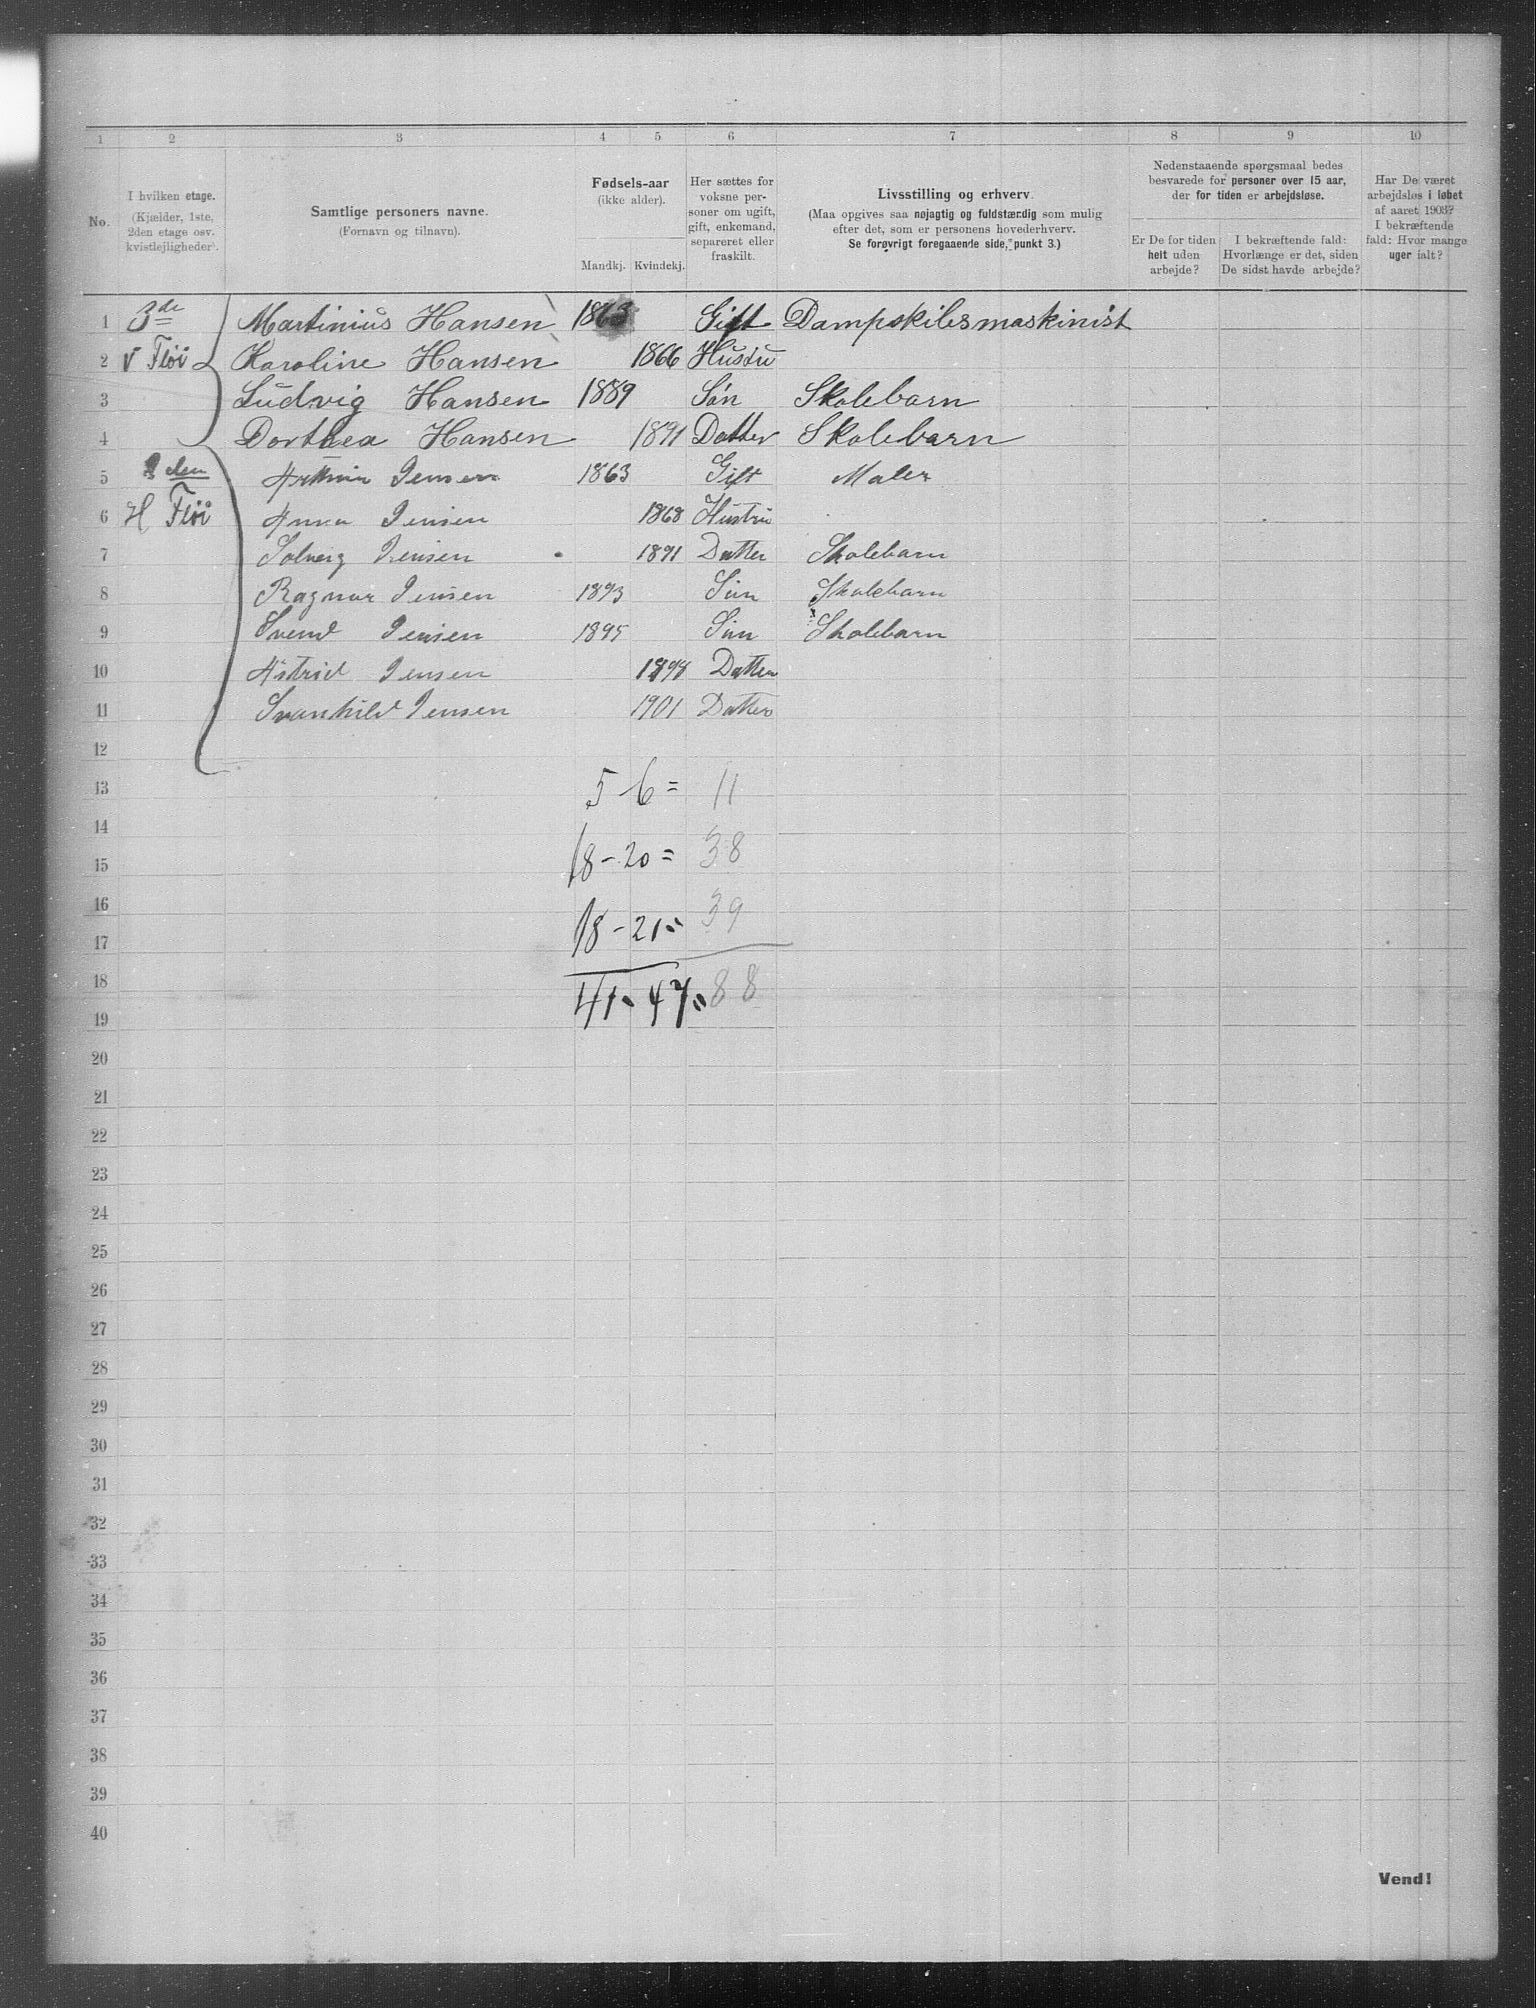 1 2 3 4 5 6 7 8 9 10
No.
I hvilken etage.
(Kjælder, 1ste,
2den etage osv.
kvistlejligheder).
Samtlige personers navne.
(Fornavn og tilnavn).
Fødsels-aar
(ikke alder).
Mandkj. Kvindekj.
Her sættes for
voksne per-
soner om ugift,
gift, enkemand,
separeret eller
fraskilt.
Livsstilling og erhverv.
(Maa opgives saa nøjagtig og fuldstændig som mulig
efter det, som er personens hovederhverv.
Se forøvrigt foregaaende side, punkt 3.)
Nedenstaaende spørgsmaal bedes
besvarede for personer over 15 aar,
der for tiden er arbejdsløse.
Er De for tiden
helt uden
arbejde?
I bekræftende fald:
Hvorlænge er det, siden
De sidst havde arbejde?
Har De været
arbejdsløs i løbet
af aaret 1903?
I bekræftende
fald: Hvor mange
uger ialt?
1 3de Martinius Hansen 1863 Gift Dampskibsmaskinist
2 V Fløi Karoline Hansen 1866 Hustru
3 Ludvig Hansen 1889 Søn Skolebarn
4 Dorthea Hansen 1891 Datter Skolebarn
5 3den Jensen 1863 Gift Maler
6 H Fløi Anna Jensen 1868 Hustru
7 Solveig Jensen 1891 Datter Skolebarn
8 Ragnar Jensen 1893 Søn Skolebarn
9 Svend Jensen 1895 Søn Skolebarn
10 Astrid Jensen 1898 Datter
11 Svanhild Jensen 1901 Datter
12
13 5-6= 11
14
15 18-20= 38
16
17 18-21= 39
18
19 41-47= 88
20
21
22
23
24
25
26
27
28
29
30
31
32
33
34
35
36
37
38
39
40
Vend!